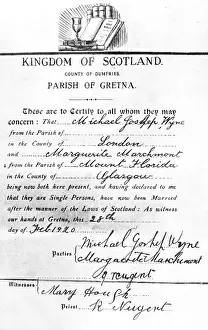 KINGDOM OF SCOTLAND.
COUNTY OF DUMFRIES.
PARISH OF GRETNA.
These are to Certify to all whom they may
concern: That Michael Joshep Wyne
from the Parish of
in the County of London
and Marguerite Marchmont
from the Parish of Mount Florida
in the County of Glasgow
being now both here present, and having declared to me
that they are Single Persons, have now been Married
after the manner of the Laws of Scotland: As witness
our hands at Gretna, this 28th
day of Feb. 1920.
Michael Joshep Wyne
Marguerite Marchmont
Nugent
Witnesses
Mary Hough
Priest R Nugent